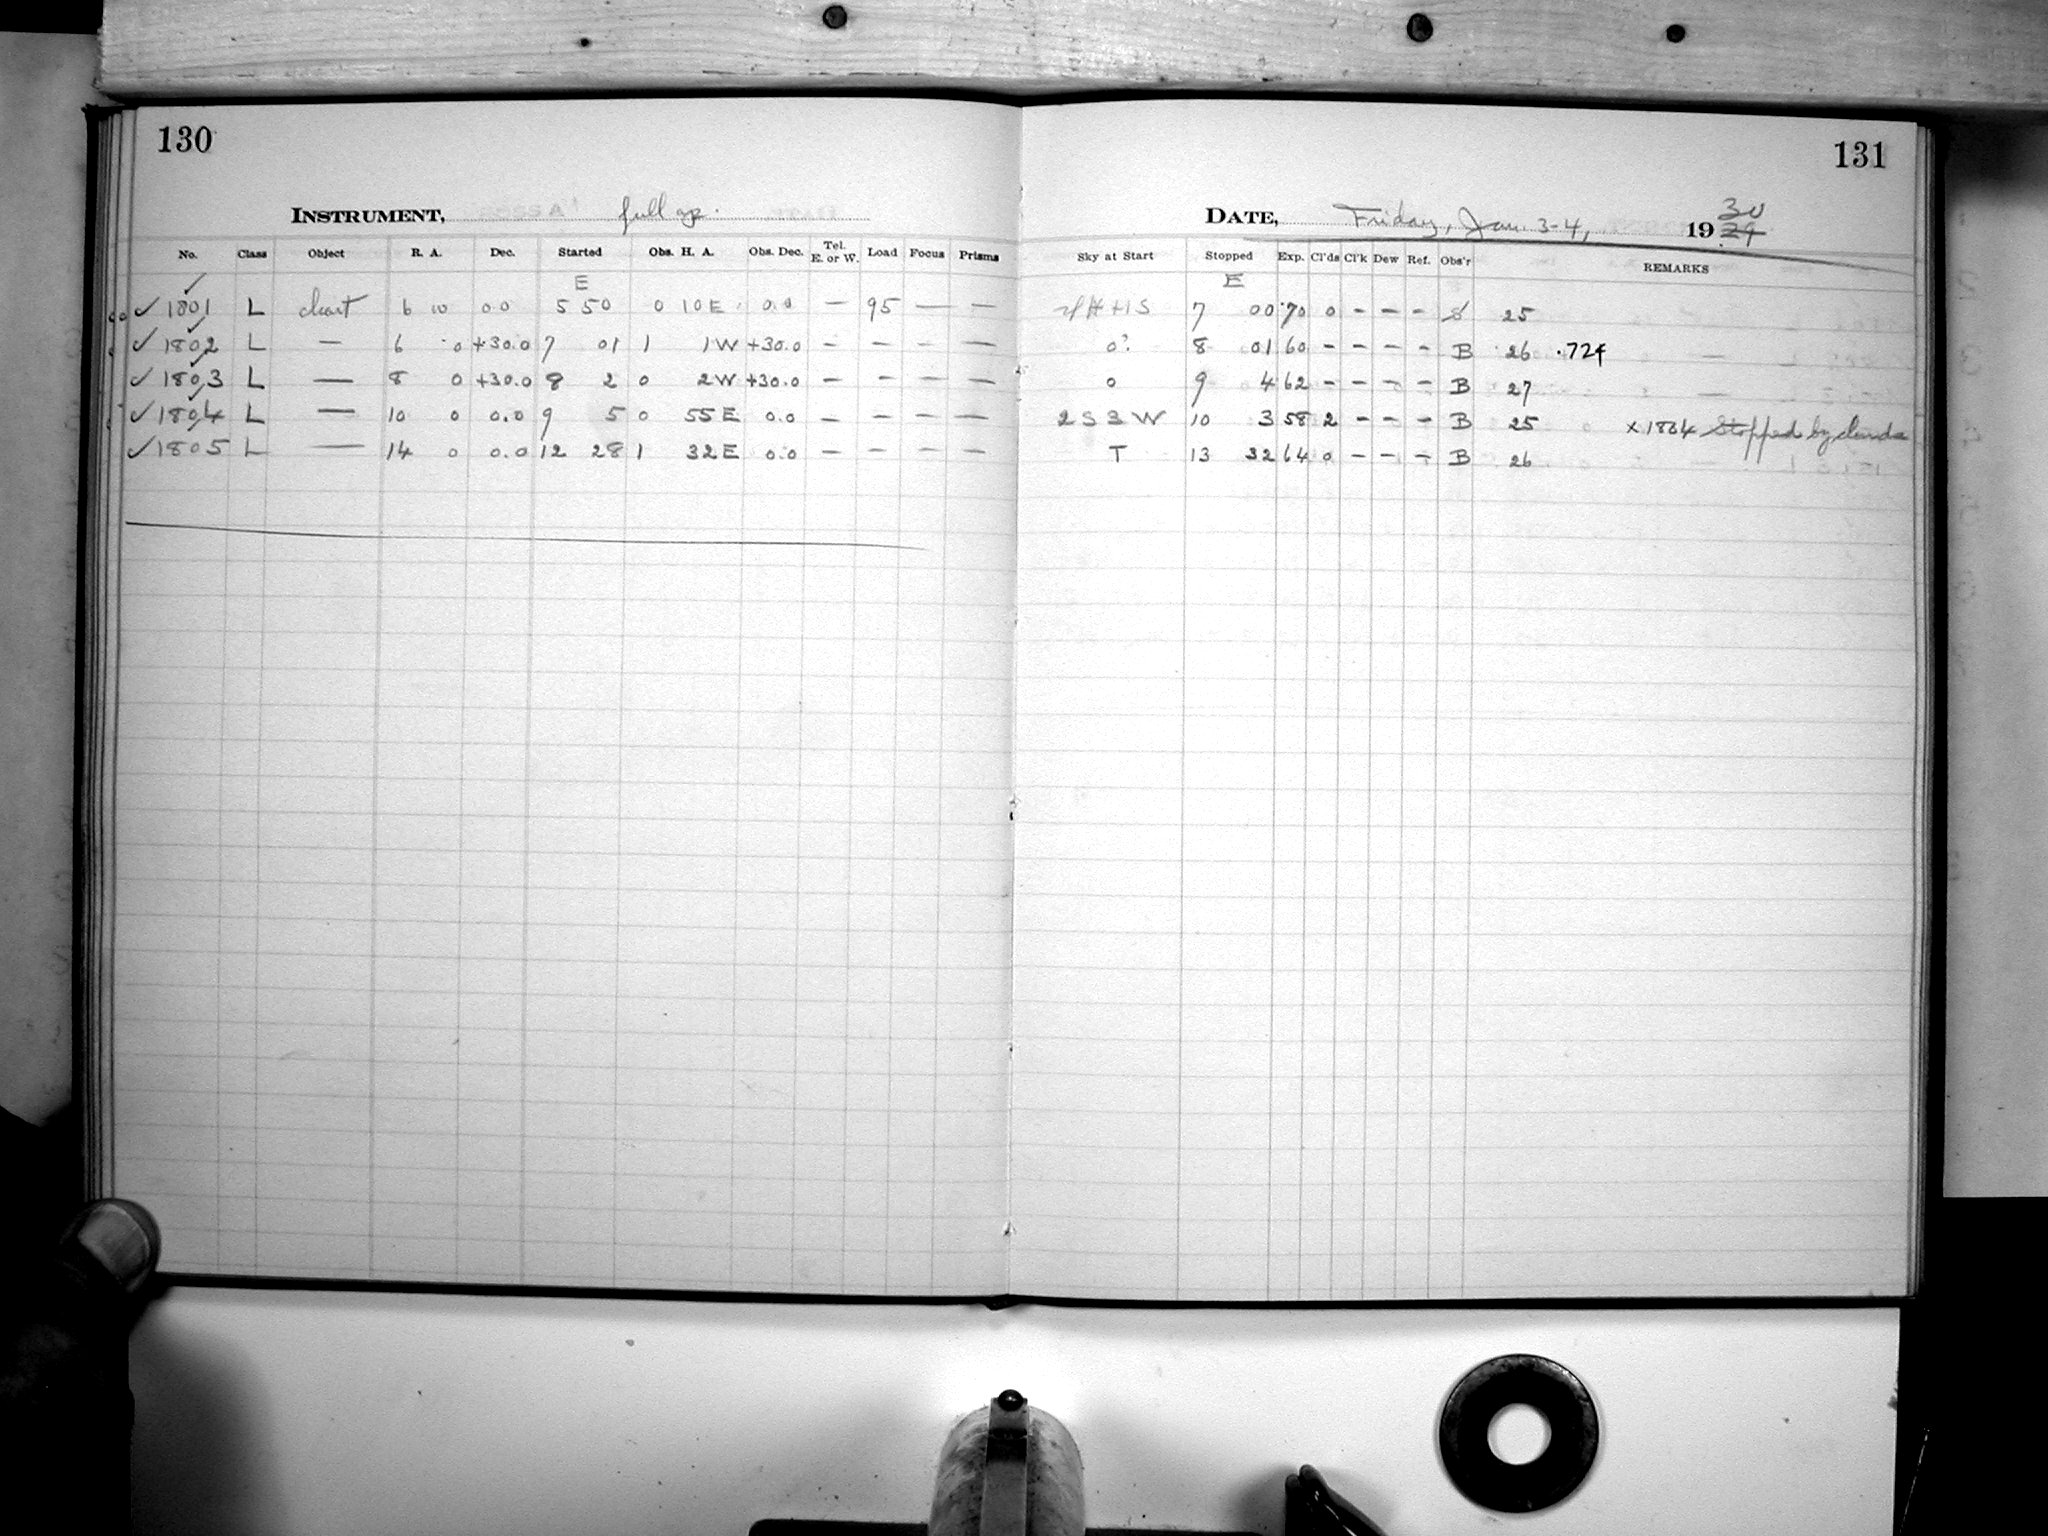 130
131
INSTRUMENT, full ap.
DATE, Friday, Jan. 3-4, 19 29 30
No. Class Object R. A. Dec. Started Obs. H. A. Obs. Dec. Tel. E. or W. Load Focus Prisms Sky at Start Stopped Exp. Cl'ds Cl'k Dew Ref. Obs'r REMARKS
E E
✓ 1801 L chart 6 10 0.0 5 50 0 10 E 0.0 — 95 — — 7 00 70 0 - - - 25
✓ 1802 L — 6 0 +30.0 7 01 1 1 W +30.0 — — — — 0? 8 01 60 - - - - B 26 .724
✓ 1803 L — 8 0 +30.0 8 2 0 2 W +30.0 — — — — 0 9 4 62 - - - - B 27
✓ 1804 L — 10 0 0.0 9 5 0 55 E 0.0 — — — — 2 S 3 W 10 3 58 2 - - - B 25 x 1804 Stopped by clouds
✓ 1805 L — 14 0 0.0 12 28 1 32 E 0.0 — — — — T 13 32 64 0 - - - B 26